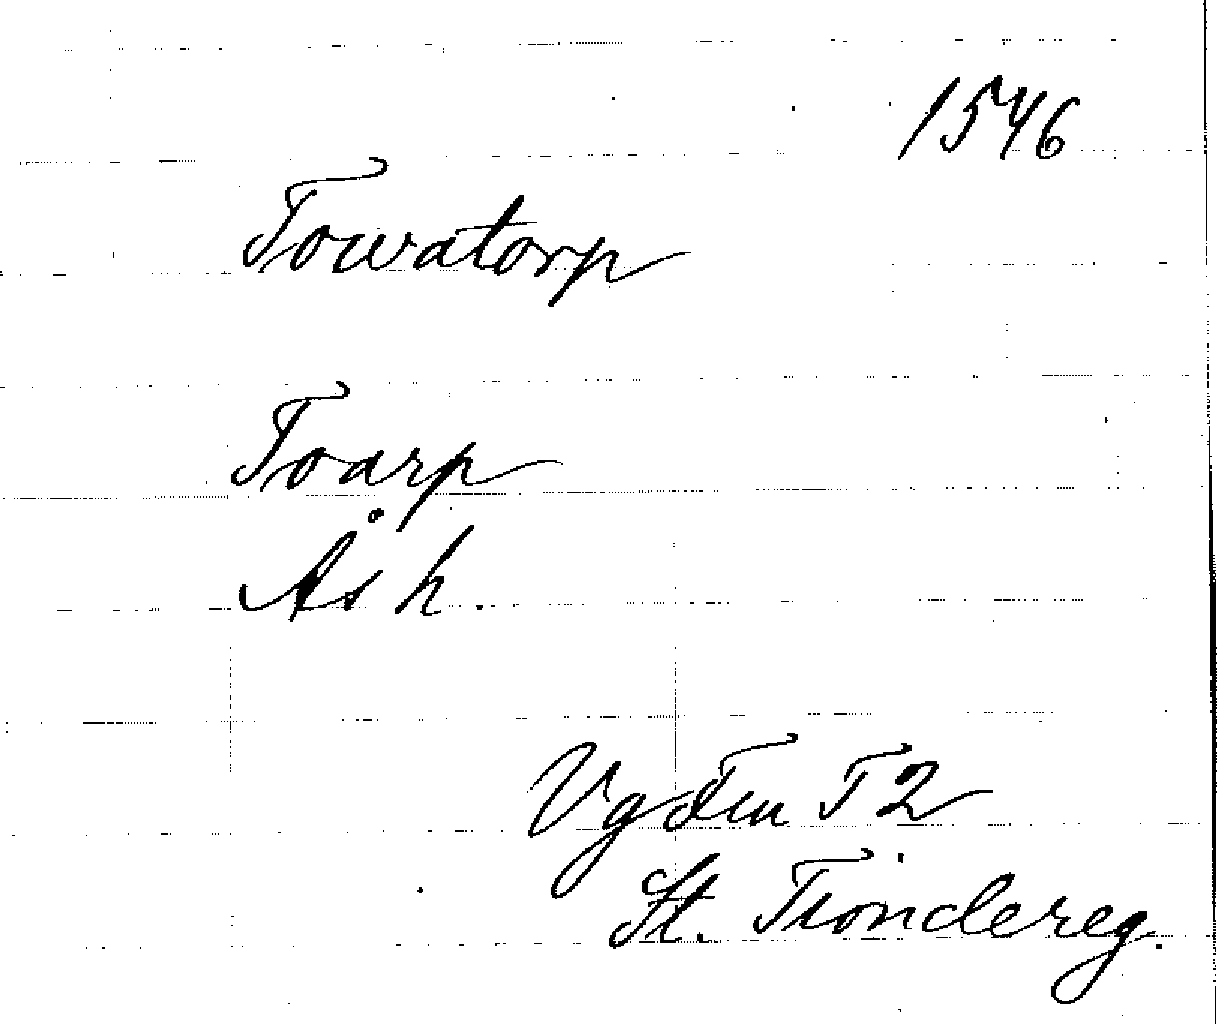 1546
Towatorp
Toarp
Ås h.
Vg Fem T 2
St. Tiondereg.